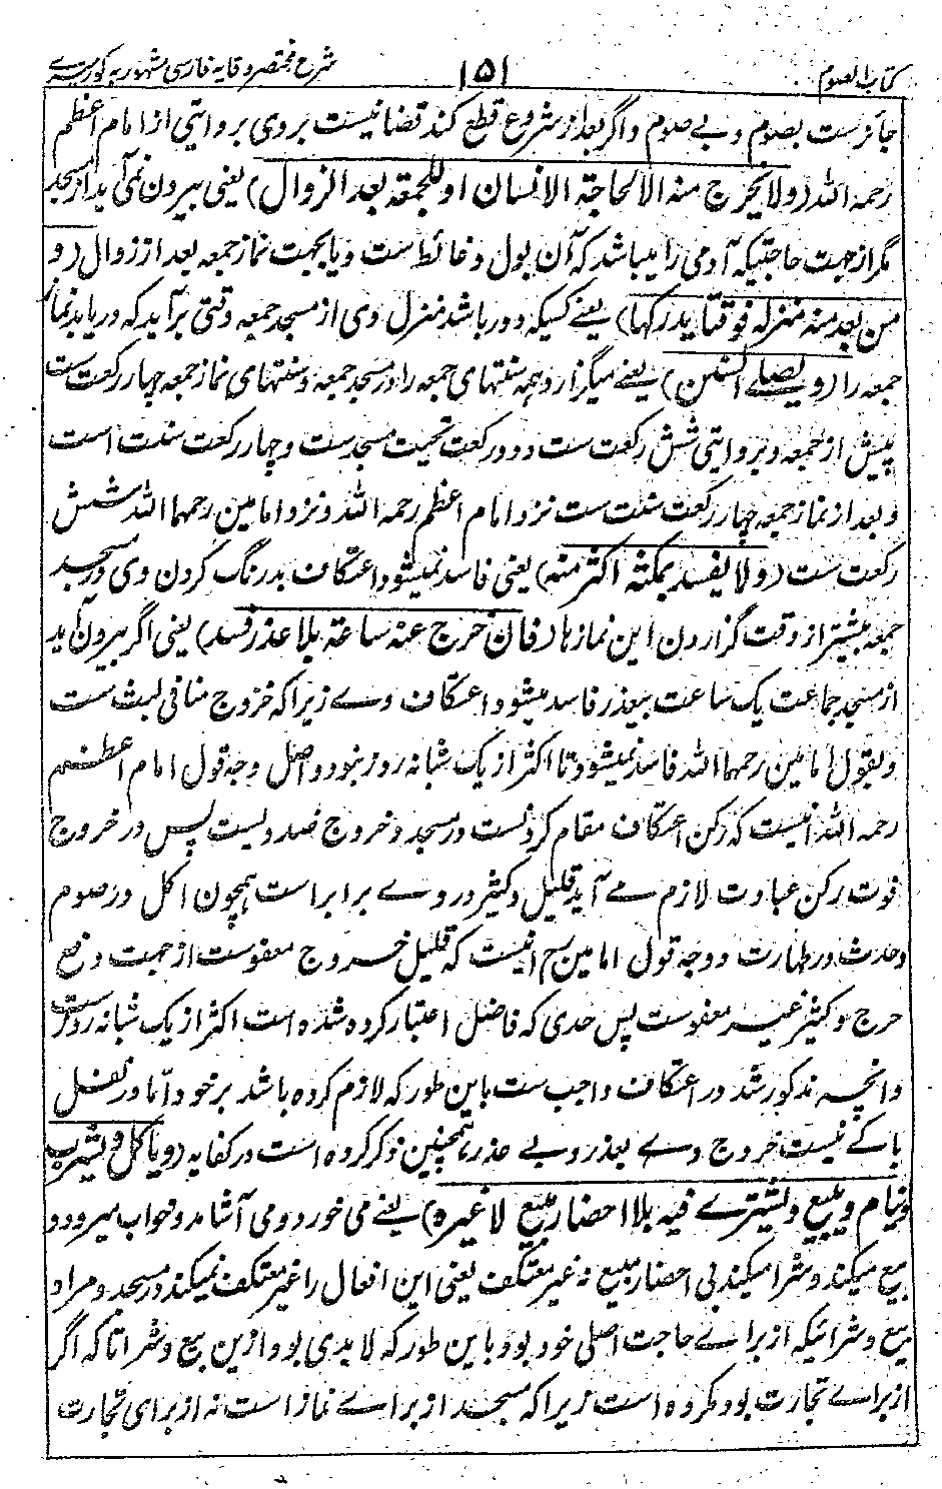 کتاب الصوم ۱۵۱ شرح مختصر وقایه فارسی مشهور به کورسیری
جائزست بصوم و بے صوم و اگر بعد از شروع قطع کند قضا نیست بروی بروایتی از امام اعظم
رحمه الله (ولا یخرج منه الا لحاجة الانسان او للجمعة بعد الزوال) یعنی بیرون نمی آید از مسجد
مگر از جهت حاجتیکه آدمی را میباشد که آن بول و غائط ست و یا بجهت نماز جمعه بعد از زوال (و
من بعد منه منزله فوقتا یدرکها) یعنے کسیکه دور باشد منزل وی از مسجد جمعه وقتی برآید که دریابد نماز
جمعه را (ویصلے السنن) یعنے میگزارد همه سنتهای جمعه را در مسجد جمعه و سنتهای نماز جمعه چهار رکعت ست
پیش از جمعه و بروایتی شش رکعت ست دو رکعت تحیت مسجدست و چهار رکعت سنت است
و بعد از نماز جمعه چهار رکعت سنت ست نزد امام اعظم رحمه الله و نزد امامین رحمهما الله شش
رکعت ست (ولا یفسد بمکثه اکثر منه) یعنی فاسد نمیشود اعتکاف بدرنگ کردن وی در مسجد
جمعه بیشتر از وقت گزاردن این نمازها (فان خرج عنه ساعة بلا عذر فسد) یعنی اگر بیرون آید
از مسجد جماعت یک ساعت بیعذر فاسد میشود اعتکاف وے زیرا که خروج منافی لبث ست
و بقول امامین رحمهما الله فاسد نمیشود تا اکثر از یک شبانه روز نبود و اصل وجه قول امام اعظم
رحمه الله انیست که رکن اعتکاف مقام کردنست در مسجد و خروج ضد ویست پس در خروج
فوت رکن عبادت لازم مے آید قلیل و کثیر در وے برابر است همچون اکل در صوم
و حدث در طهارت و وجه قول امامین رح انیست که قلیل خروج معفوست از جهت دفع
حرج و کثیر غیر معفوست پس حدی که فاضل اعتبار کرده شده است اکثر از یک شبانه روزست
و انچه مذکور شد در اعتکاف واجب ست باین طور که لازم کرده باشد بر خود اما در نفل
باکے نیست خروج وے بعذر و بے عذر همچنین ذکر کرده است در کفایه (ویاکل ویشرب
وینام ویبیع ویشترے فیه بلا احضار مبیع لا غیره) یعنے می خورد و می آشامد و خواب میرود و
بیع میکند و شرا میکند بی احضار مبیع نه غیر معتکف یعنی این افعال را غیر معتکف نمیکند در مسجد و مراد
بیع و شرائیکه از براے حاجت اصلی خود بود باین طور که لابدی بود ازین بیع و شرا تا که اگر
از براے تجارت بود مکروه است زیرا که مسجد از براے نماز است نه از برای تجارت